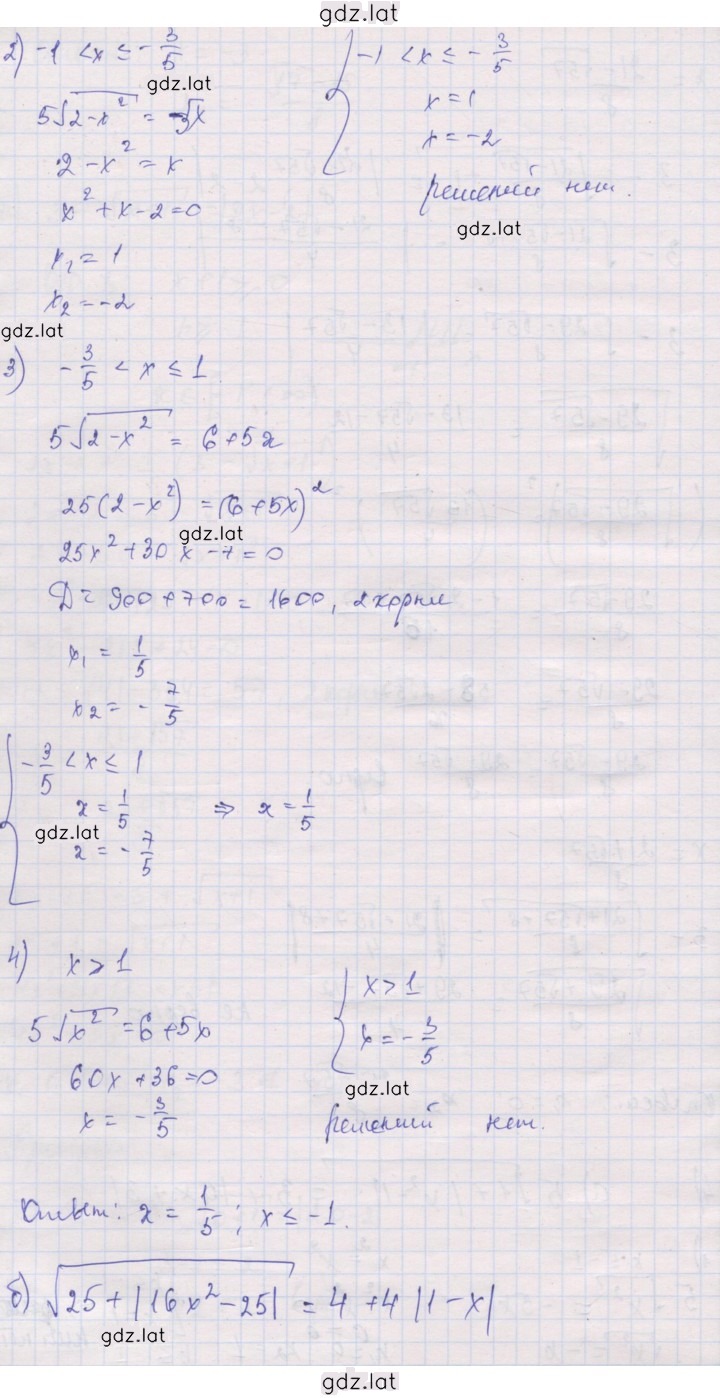 gdz.lat
2) -1 < x ≤ -3/5
gdz.lat
5√(2-x²) = -5x
2 - x² = x
x² + x - 2 = 0
x₁ = 1
x₂ = -2
gdz.lat
{ -1 < x ≤ -3/5
x = 1
x = -2
решений нет.
gdz.lat
3) -3/5 < x ≤ 1
5√(2-x²) = 6+5x
25(2-x²) = (6+5x)²
gdz.lat
25x² + 30x - 7 = 0
D = 900 + 700 = 1600, 2 корня
x₁ = 1/5
x₂ = -7/5
{ -3/5 < x ≤ 1
x = 1/5 ⇒ x = 1/5
gdz.lat
x = -7/5
4) x > 1
5√(x²) = 6+5x
60x + 36 = 0
x = -3/5
{ x > 1
x = -3/5
gdz.lat
решений нет.
Ответ: x = 1/5; x ≤ -1.
б) √(25 + |16x² - 25|) = 4 + 4|1-x|
gdz.lat
gdz.lat